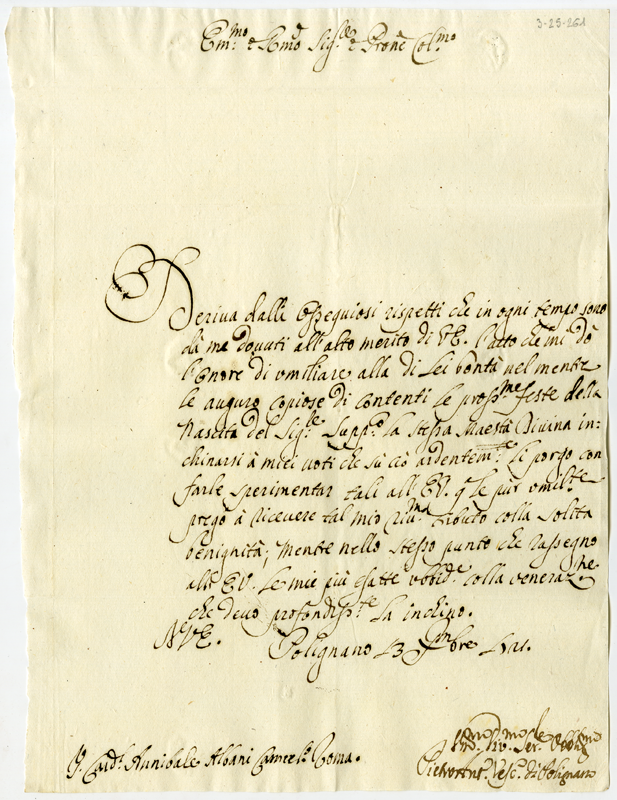 3-25-261
Em.mo e Rmo Sig.re e Prone Col.mo
Deriva dalli ossequiosi rispetti che in ogni tempo sono
da me dovuti all'alto merito di VE. l'atto che mi dò
l'onore di umiliare alla di Lei bontà nel mentre
le auguro copiose di contenti le pross.me feste della
Nascita del Sig.re Supp.o la stessa Maestà Divina in=
chinarsi à miei voti che sù ciò ardentem.te Li porgo con
farle sperimentar tali all'EV. q le più umilte
prego à ricevere tal mio tributo colla solita
benignità; mentre nello stesso punto che rassegno
all'EV. le mie più esatte vobid.e colla veneraz.ne
che devo profondiss.te La inchino.
Di VE. Polignano 13 Xmbre
Card.l Annibale Albani Camerl.o Roma.
Vmo Divmo ser. Obblmo
Vesc.o di Polignano